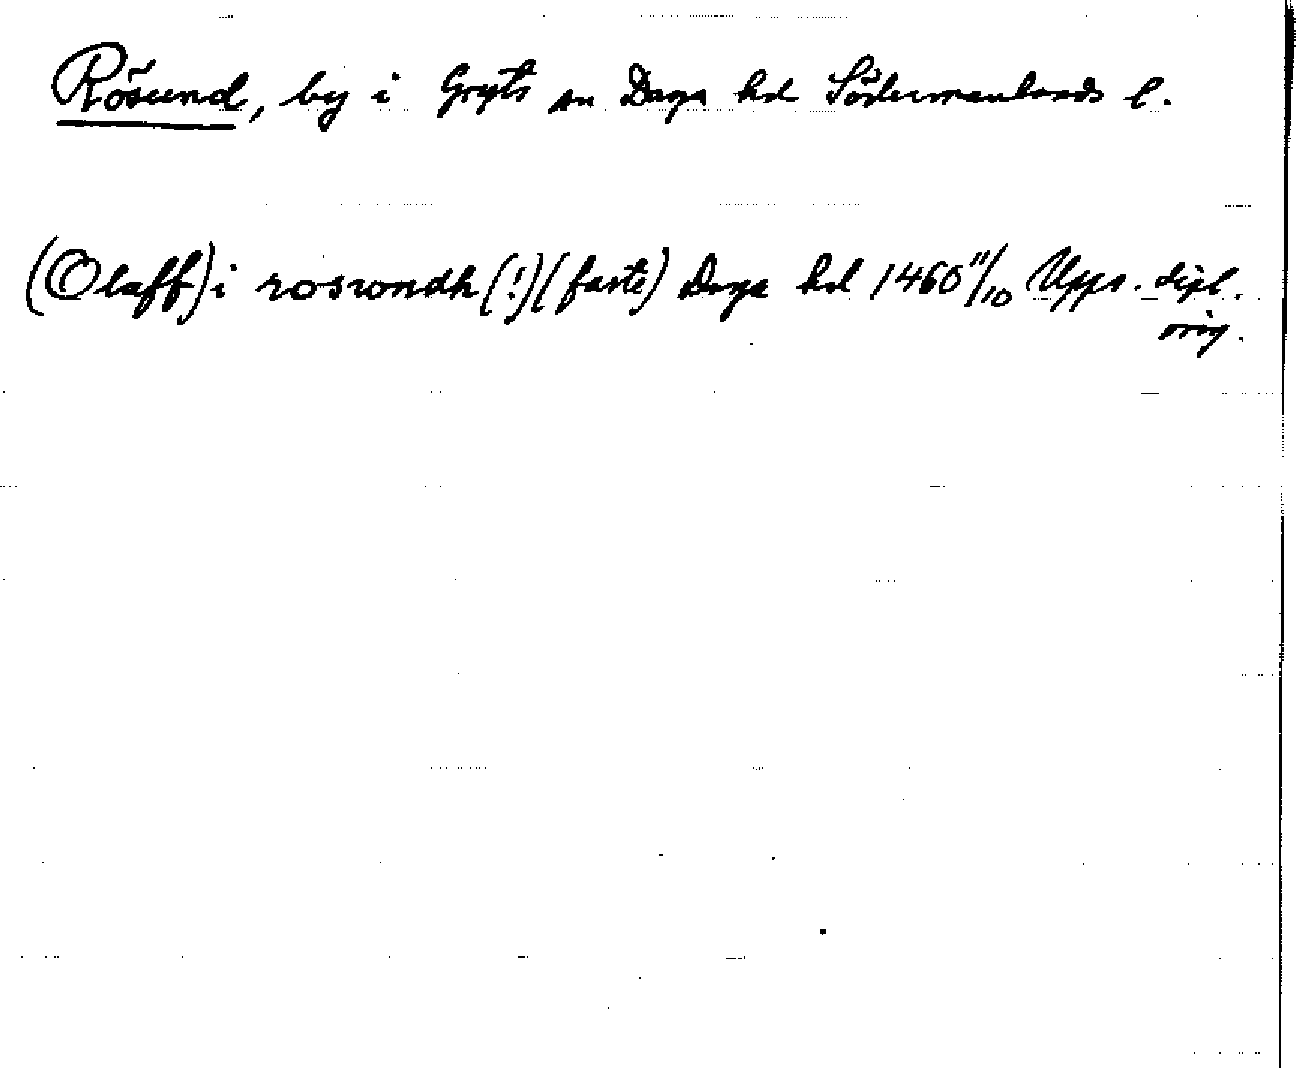 Rösund, by i Gryts sn Daga hd Södermanlands l.
(Olaff) i rosvondh (!) (faste) Daga hd 1460 11/10 Upps. dipl.
orig.